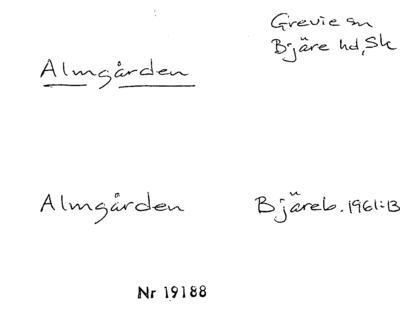 Grevie sn
Bjäre hd, Sk
Almgården
Almgården Bjäreb. 1961:13
Nr 19188